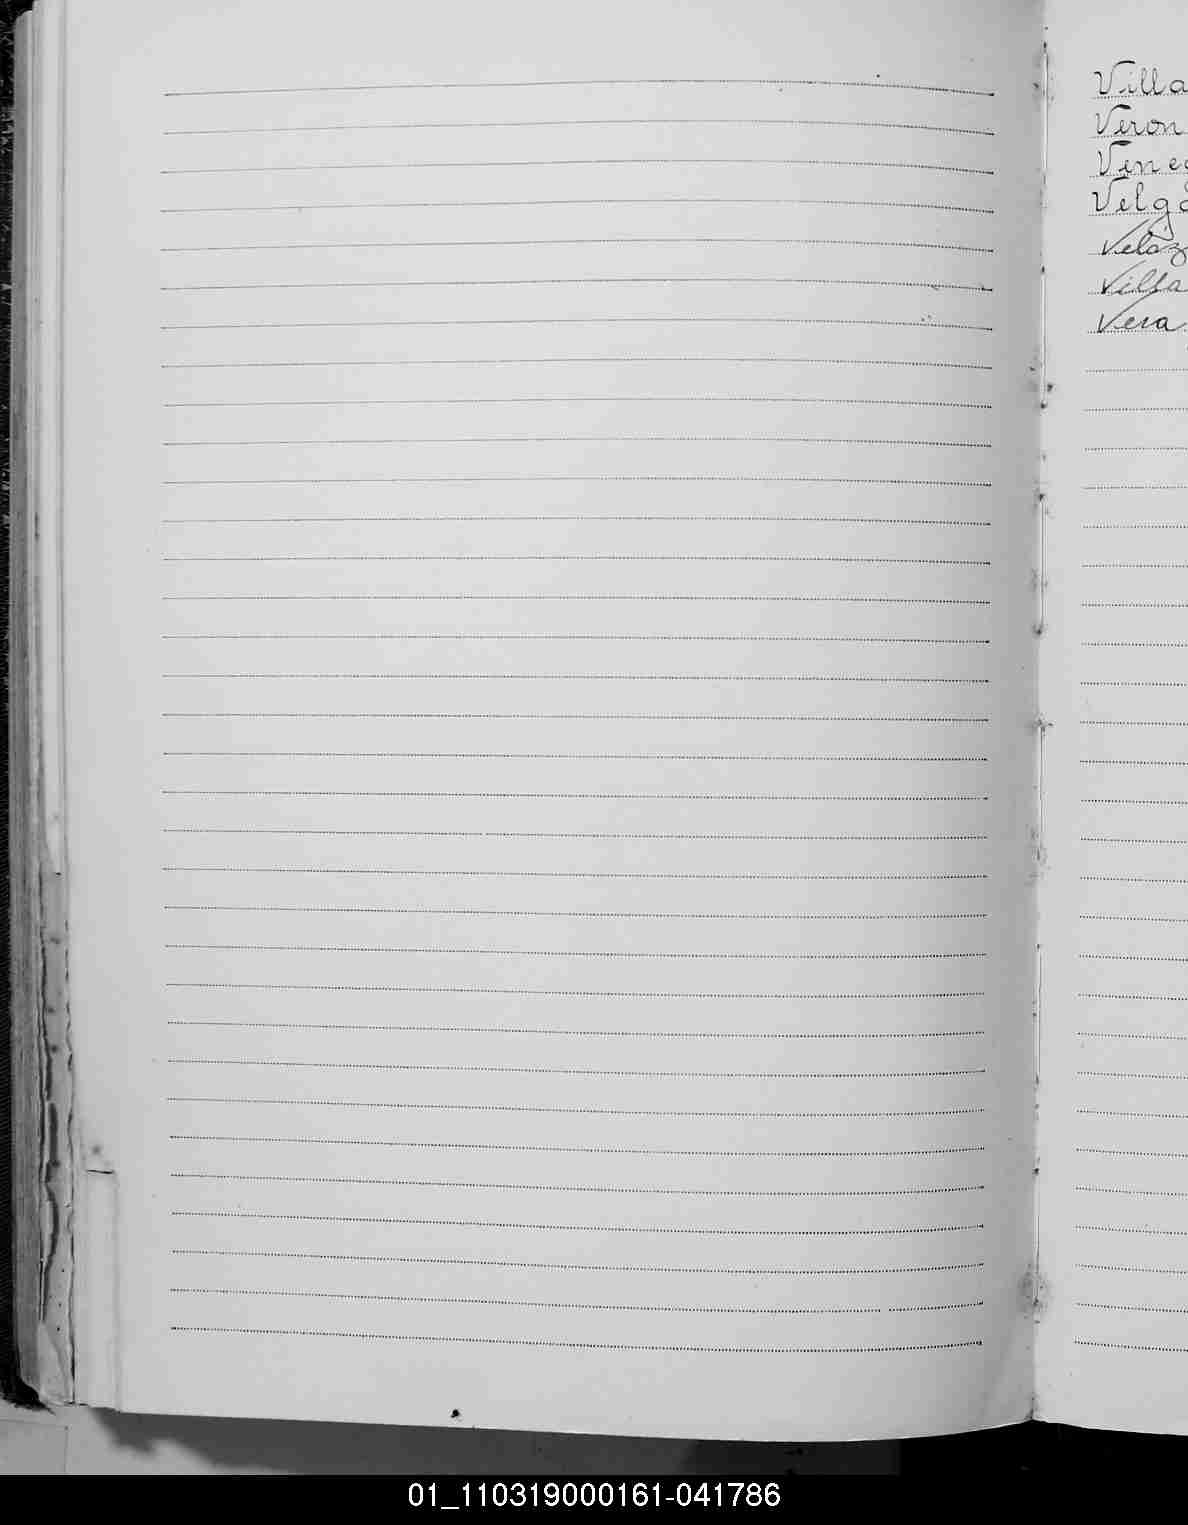 Villa
Veron
Vene
Velgá
Veláz
Villa
Vera
01_110319000161-041786